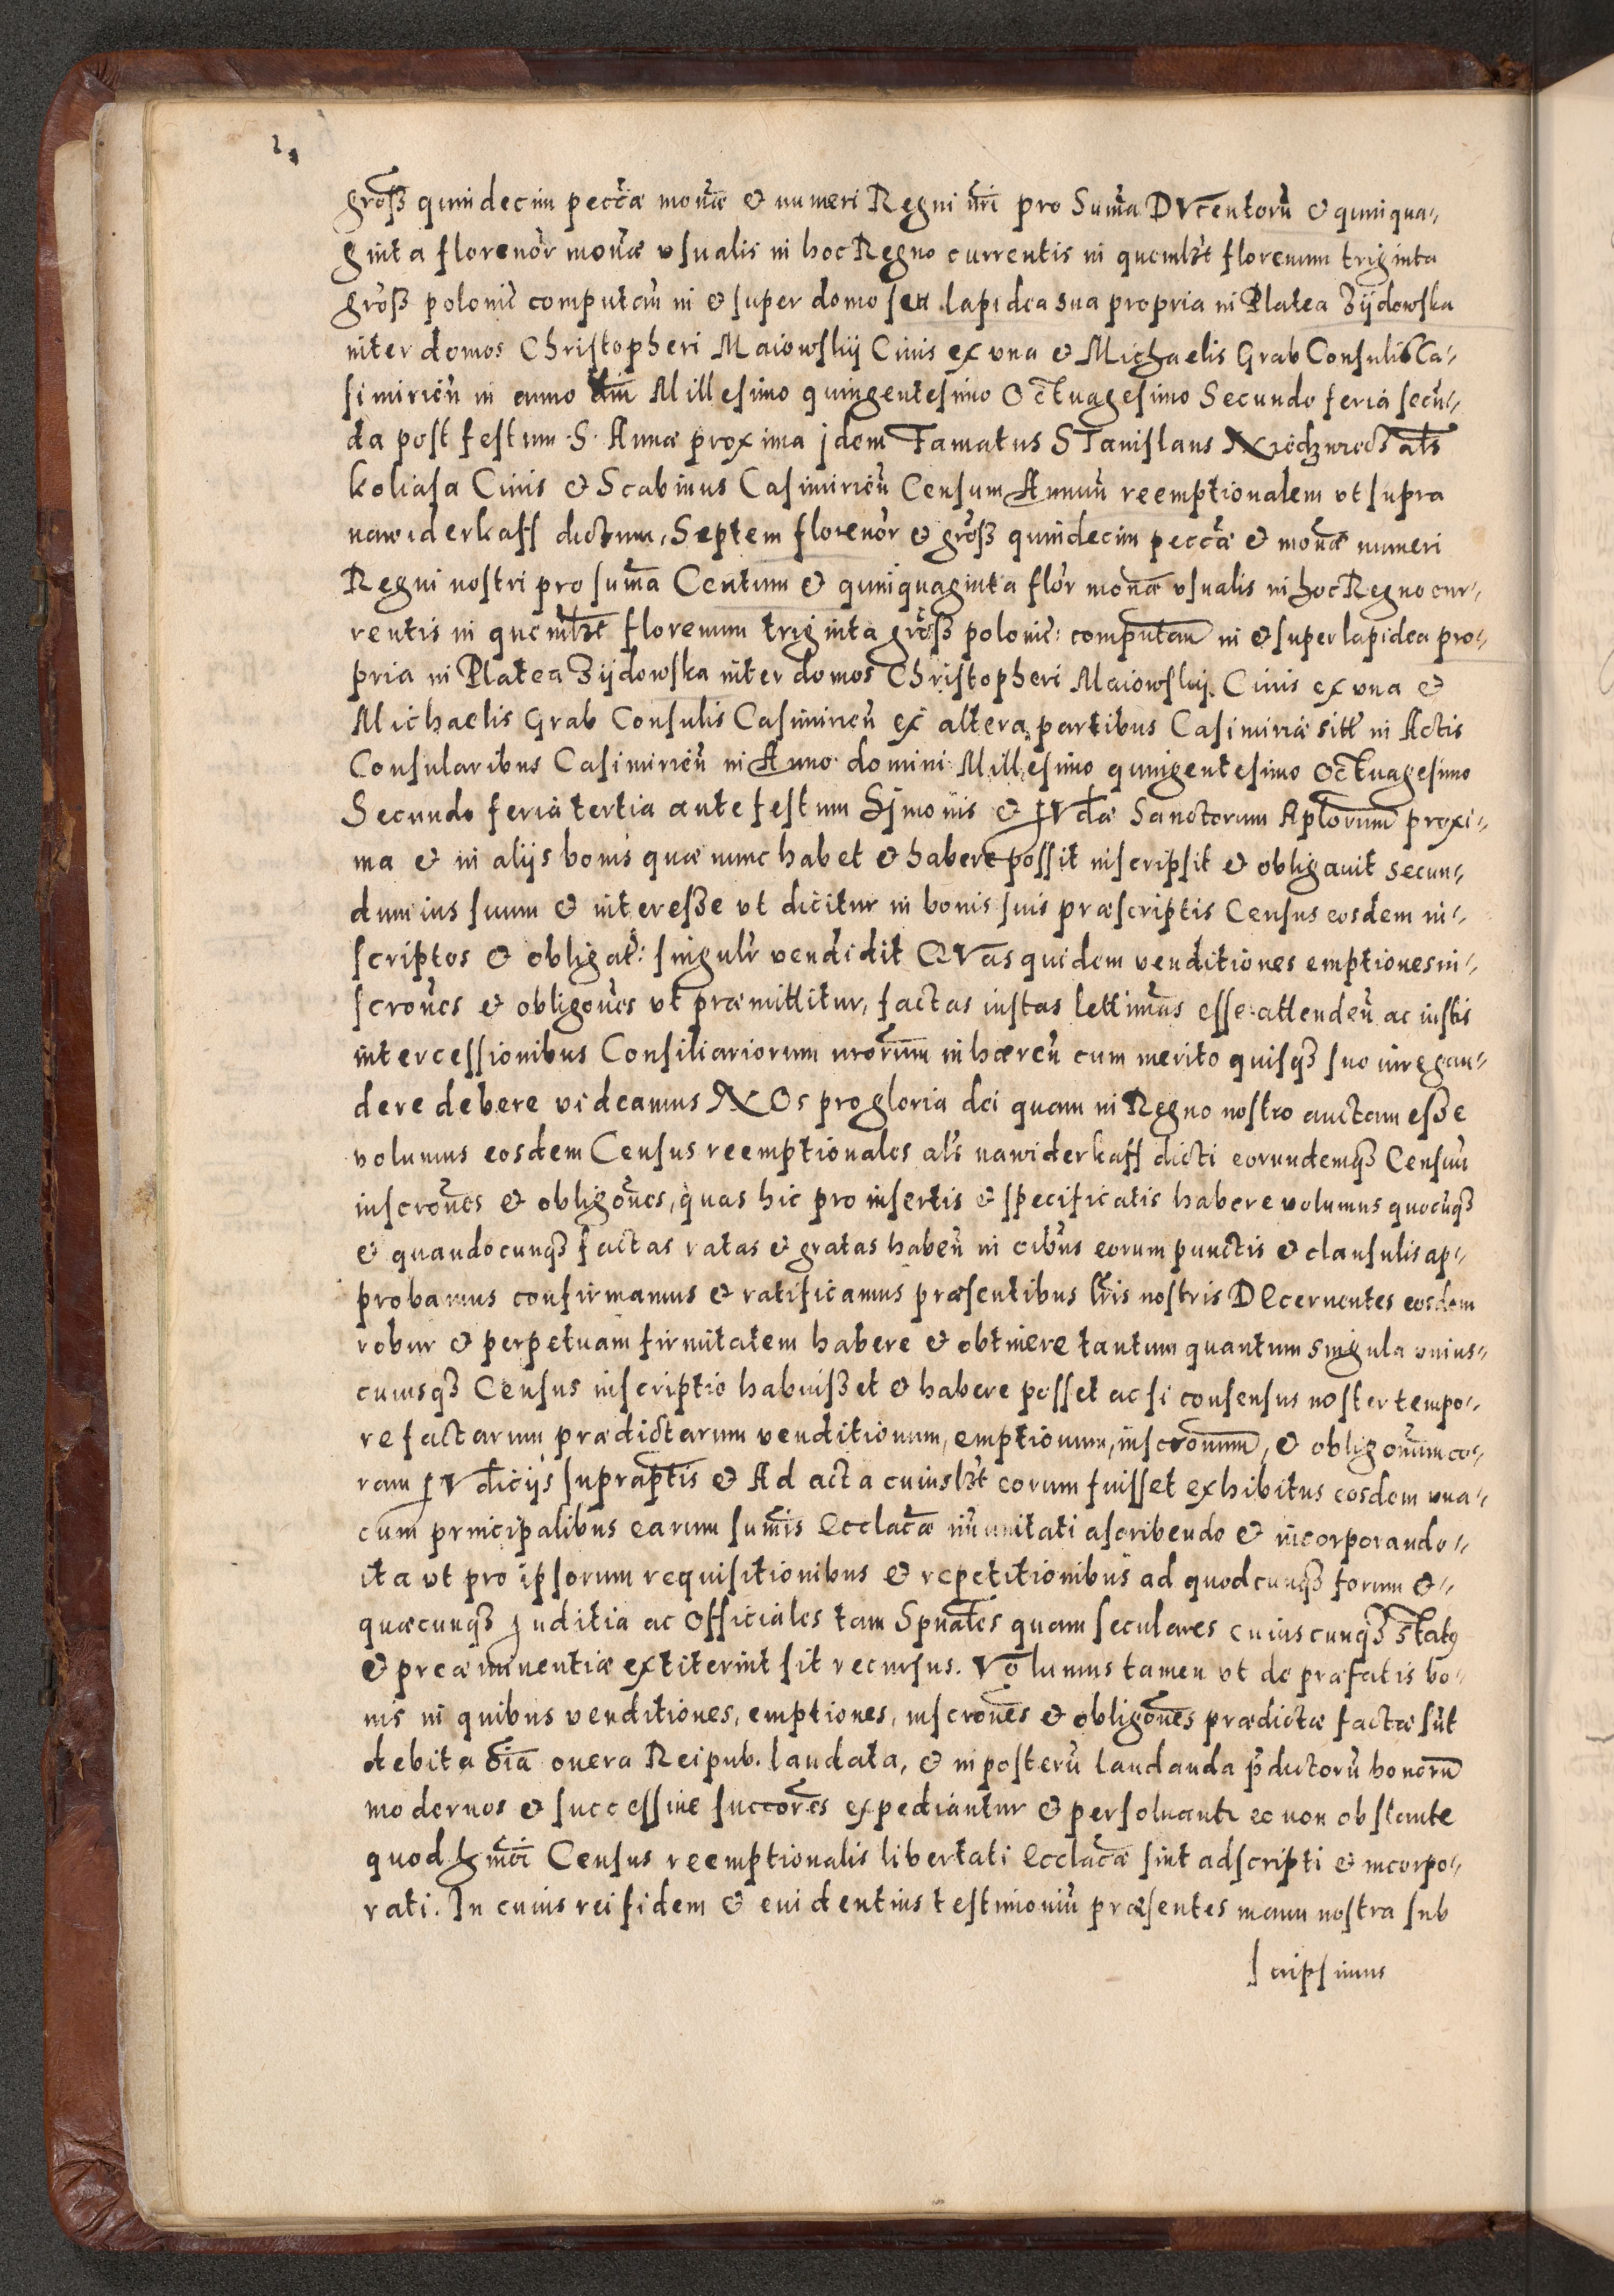 2.
grosß quindecim pecciæ monæ & numeri Regni nri pro Suma DVcentorū & quinqua-
ginta florenor monæ vsualis in hoc Regno currentis in quemlzt florenum triginta
grosß polonic computan in & super domo seu lapidea sua propria in Platea Zÿdowska
inter domos Christopheri Maiowskÿ Ciuis ex vna & Michaelis Grab Consulis Ca-
simirien in anno dni Millesimo quingentesimo Octuagesimo Secundo feria secū-
da post festum S. Annæ proxima jdem Famatus STanislaus als
koliasa Ciuis & Scabinus Casimirien Censum Annuū reemptionalem vt supra
nawiderkaff dictum, Septem florenor & grosß quindecim peccæ & monæ numeri
Regni nostri pro suma Centum & quinquaginta flor monæ vsualis in hoc Regno cur-
rentis in quemlzt florenum triginta grosß polonic: computan in & super lapidea pro-
pria in Platea Zÿdowska inter domos Christopheri Maiowskÿ Ciuis ex vna &
Michaelis Grab Consulis Casimirien ex altera partibus Casimiriæ sitt in Actis
Consularibus Casimirien in Anno domini Millesimo quingentesimo Octuagesimo
Secundo feria tertia ante festum Simonis & IVdæ Sanctorum Aplorum proxi-
ma & in alijs bonis quæ nunc habet & habere possit inscripsit & obligauit secun-
dum ius suum & interesße vt dicitur in bonis suis præscriptis Census eosdem in-
scriptos & obligat: singulr vendidit QVas quidem venditiones emptiones in-
scrones & obligones vt præmittitur, factas iustas lettimas esse attenden ac iustis
intercessionibus Consiliariorum nrorum inhæren cum merito quisqz suo iure gau-
dere debere videamus NOs pro gloria dei quam in Regno nostro auctam esße
volumus eosdem Census reemptionales als nawiderkaff dicti eorundemqz Censuū
inscrones & obligones, quas hic pro insertis & specificatis habere volumus quocūqz
& quandocunqz factas ratas & gratas haben in oibus eorum punctis & clausulis ap-
probamus confirmamus & ratificamus præsentibus lris nostris DEcernentes eosdem
robur & perpetuam firmitatem habere & obtinere tantum quantum singula vnius-
cuiusqz Census inscriptio habuisßet & habere posset ac si consensus noster tempo-
re factarum prædictarum venditionum, emptionum, inscronum, & obligonum co-
ram IVdicijs supraptis & Ad acta cuiuslzt eorum fuisset exhibitus eosdem vna-
cum principalibus earum sumis Ecclacæ imunitati ascribendo & incorporando-
ita vt pro ipsorum requisitionibus & repetitionibus ad quodcunqz forum &-
quæcunqz Iuditia ac Officiales tam Spuales quam seculares cuiuscunqz statq
& preæminentiæ extiterint sit recursus. VOlumus tamen vt de præfatis bo-
nis in quibus venditiones, emptiones, inscrones & obligones prædictæ factæ sūt
debita oia onera Reipub. laudata, & in posterū laudanda pdictorū bonorū
modernos & successiue succores expediantur & persoluantr eo non obstante
quod hmoi Census reemptionalis libertati Ecclacæ sint adscripti & incorpo-
rati. In cuius rei fidem & euidentius testimoniū præsentes manu nostra sub
scripsimus